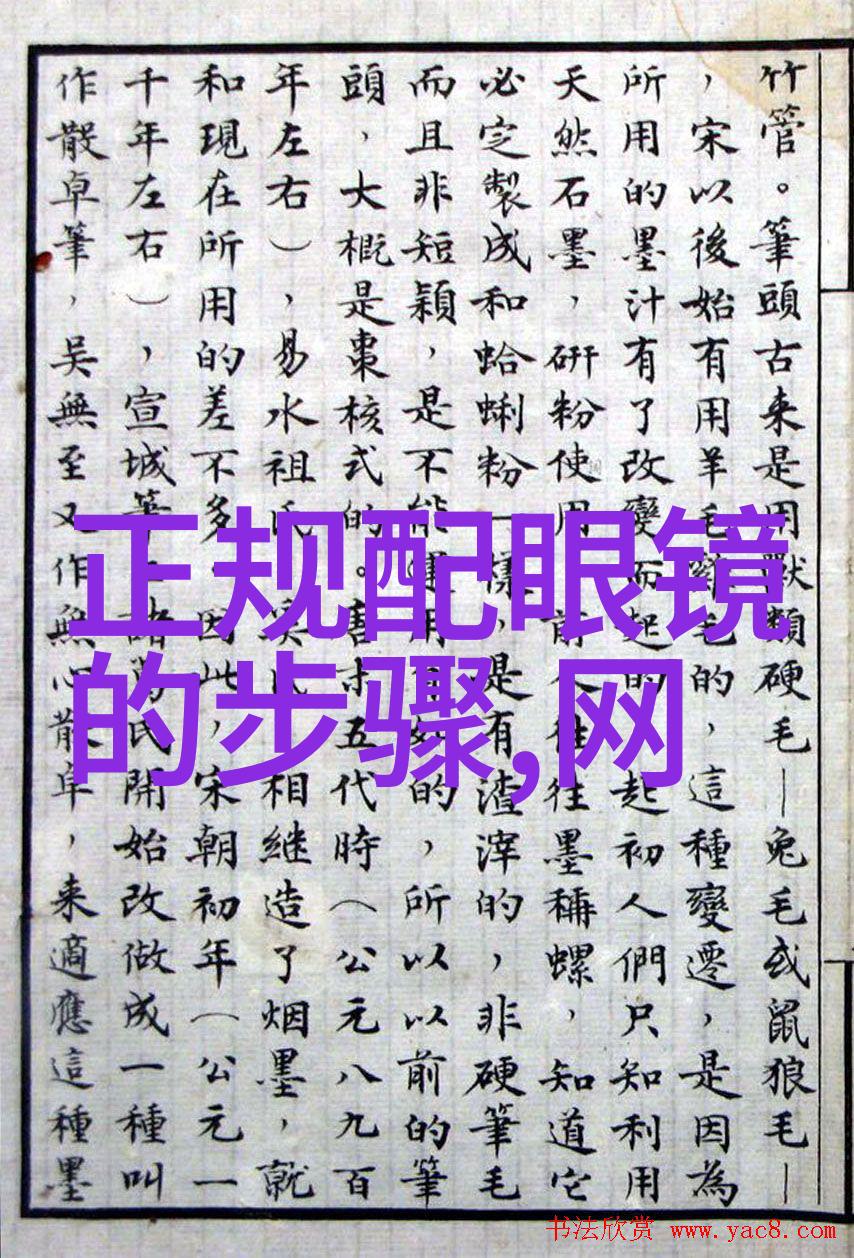 竹管。筆頭古来是用獸類硬毛—兔毛或鼠狼毛—
，宋以後始有用羊毛雞毛的，這種變遷，是因為
所用的墨汁有了改變而起的 起初人們只知利用
天然石墨，研粉使用 前人往往墨稱螺，知道它
必定製成和蛤蜊粉一樣，是有渣滓的，非硬筆毛
而且非短穎，是不能運用自如的，所以以前的筆
頭，大概是棗核式的。唐末五代時（公元八九百
年左右），易水祖氏 奚氏相継造了烟墨，就
和現在所用的差不多 因此，宋朝初年（公元一
千年左右），宣城筆工諸葛氏開始改做成一種叫
作散卓筆，吴無至又作無心散卓，来適應這種墨
正规配眼镜
的步骤,网
书法欣赏 www.yac8.com